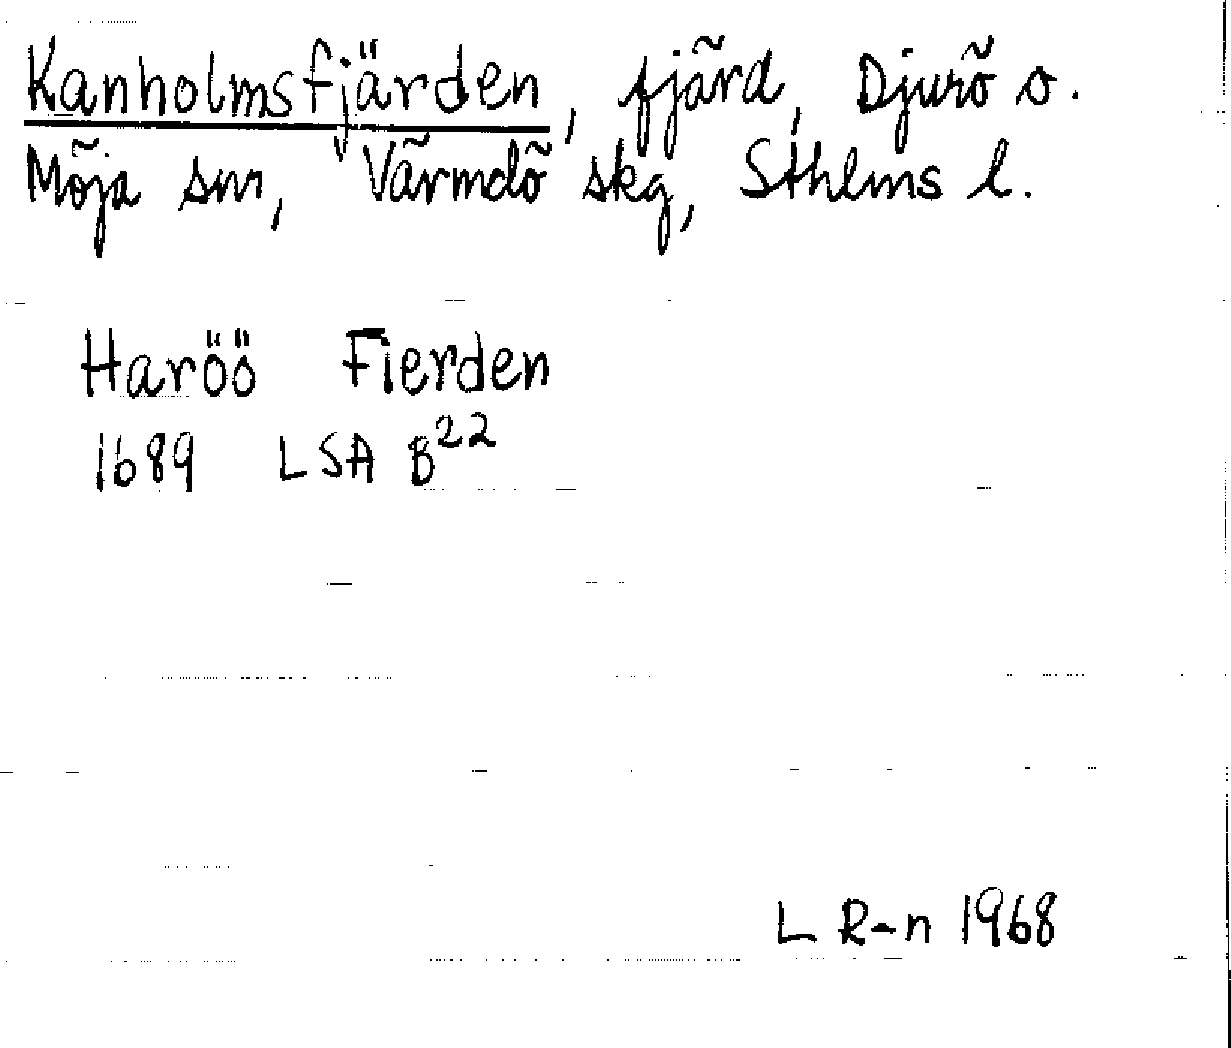 Kanholmsfjärden, fjärd, Djurö o.
Möja sn, Värmdö skg, Sthlms l.
Haröö Fierden
1689 LSA B22
L R-n 1968